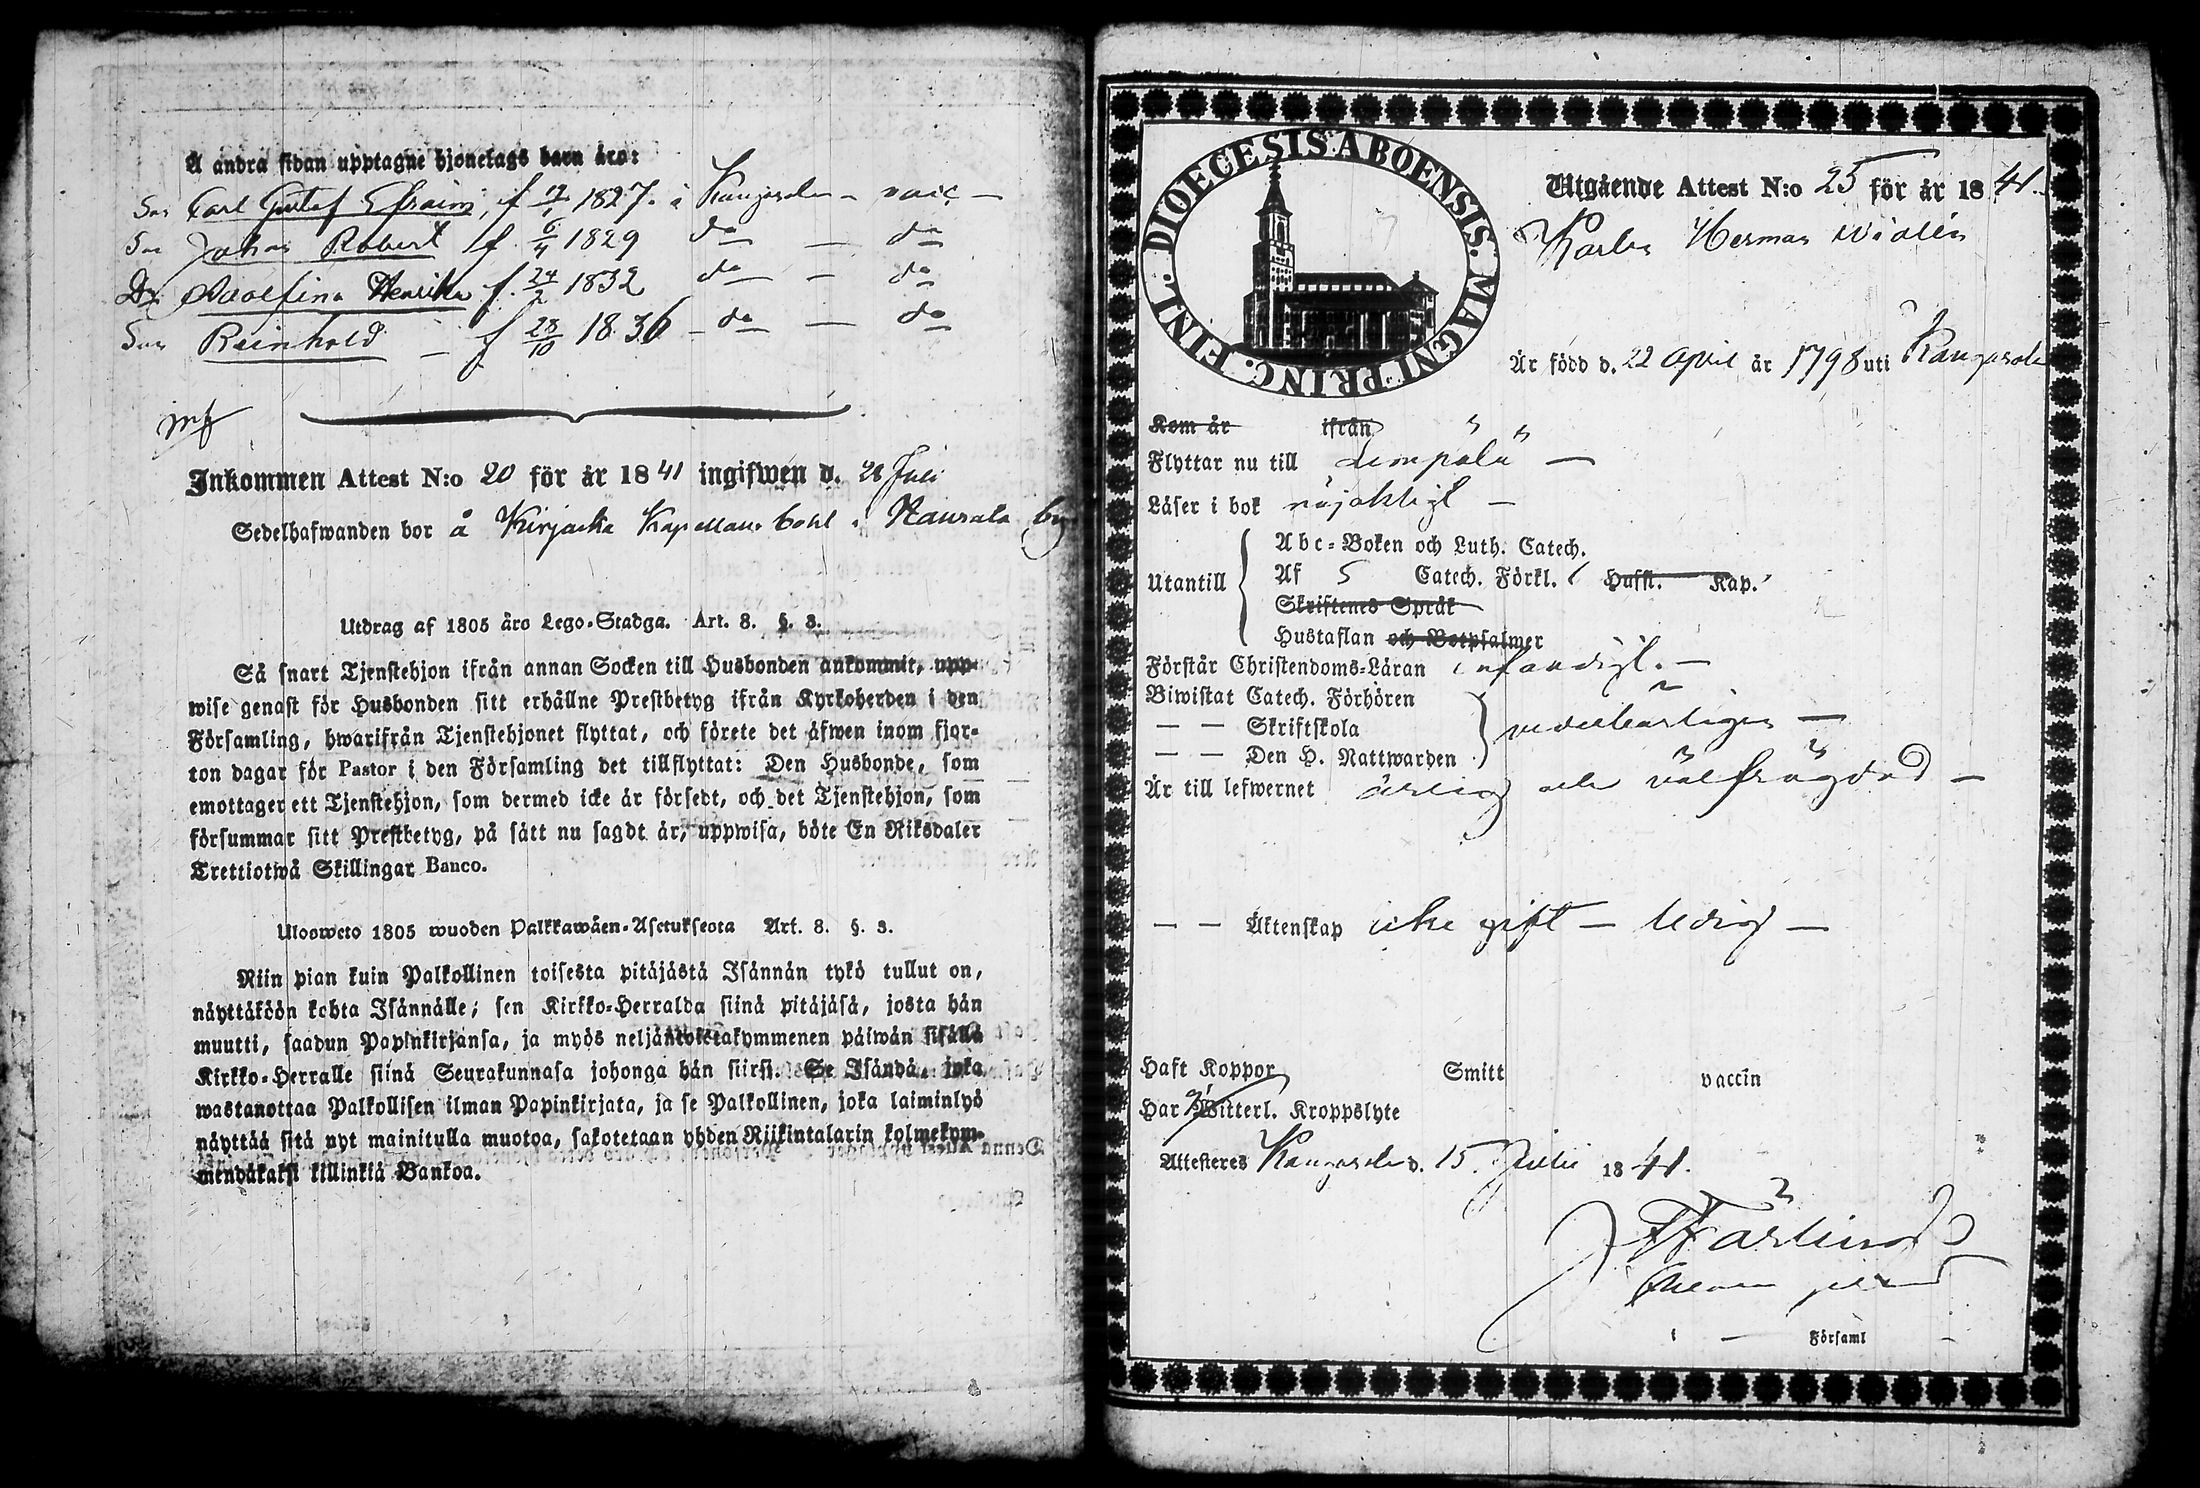 Å andra sidan upptagne hjonelags barn äro:
Son Carl Gustaf Efraim, f 12/1 1827. i Kangasala – vacc –
Son Johan Robert f. 6/4 1829 do — do
Dr Adolfina Henrika f. 24/2 1832 do – do
Son Reinhold — f 28/10 1836 – do — do
Inkommen Attest N:o 20 för år 1841 ingifwen d. 28 Juli
Sedelhafwanden bor å Kirjaska Kapellans bohl i by
Utdrag af 1805 års Lego-Stadga. Art. 8. §. 3.
Så snart Tjenstehjon ifrån annan Socken till Husbonden ankommit, upp-
wise genast för Husbonden sitt erhållne Prestbetyg ifrån Kyrkoherden i den
Församling, hwarifrån Tjenstehjonet flyttat, och förete det äfwen inom fjor-
ton dagar för Pastor i den Församling det tillflyttat: Den Husbonde, som
emottager ett Tjenstehjon, som dermed icke är försedt, och det Tjenstehjon, som
försummar sitt Prestbetyg, på sätt nu sagdt är, uppwisa, böte En Riksdaler
Trettiotwå Skillingar Banco.
Ulosweto 1805 wuoden Palkkawäen-Asetuksesta Art. 8. §. 3.
Niin pian kuin Palkollinen toisesta pitäjästä Isännän tykö tullut on,
näyttäköön kohta Isännälle; sen Kirkko-Herralda siinä pitäjäsä, josta hän
muutti, saadun Papinkirjansa, ja myös neljäntoistakymmenen päiwän sisällä
Kirkko-Herralle siinä Seurakunnasa johonga hän siirsi. Se Isändä, joka
wastanottaa Palkollisen ilman Papinkirjata, ja se Palkollinen, joka laiminlyö
näyttää sitä nyt mainitulla muotoa, sakotetaan yhden Riikintalarin kolmekym-
mendäkaksi killinkiä Bankoa.
FINL. DIOECESIS ABOENSIS. MAGNI PRINC.
Utgående Attest N:o 25 för år 1841.
Karl Herman Widlén
Är född d. 22 April år 1798 uti Kangasala
Kom år ifrån
Flyttar nu till Lempälä —
Läser i bok nöjaktigt —
Utantill
Abc-Boken och Luth. Catech.
Af 5 Catech. Förkl. Hufst. Kap.
Skriftenes Språk
Hustaflan och Botpsalmer
Förstår Christendoms-Läran —
Biwistat Catech. Förhören
— — Skriftskola
— — Den H. Nattwarden
vederbörligen —
Är till lefwernet ärlig och välfrägdad —
— — Äktenskap icke gift — ledig —
Haft Koppor Smitt vaccin
Har Witterl. Kroppslyte
Attesteras Kangasala d. 15 Julii 1841.
Församl